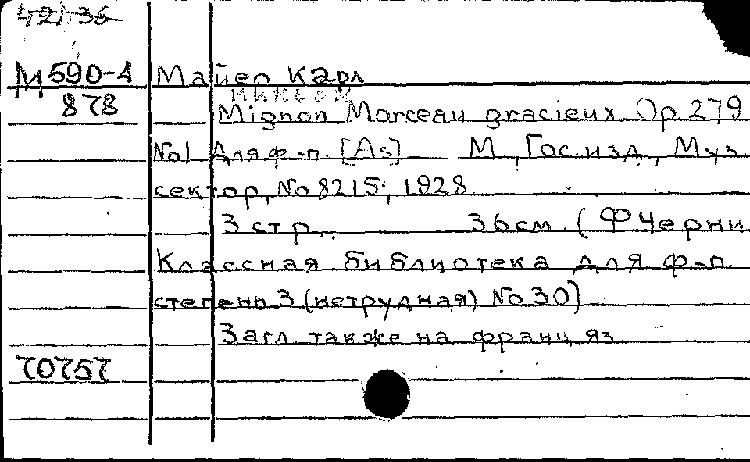 42/-36
М590-4 Майео Карл
Миньон
878 Mignon Morceau gracieux Op. 279
No1 Для ф-п. [As] М., Гос. изд., Муз.
сектор, No 8215, 1928
3 стр. 36 см. (Ф Черни
Классная библиотека для ф-п.
степень 3 (нетрудная) No 30)
Загл. также на франц. яз.
70757